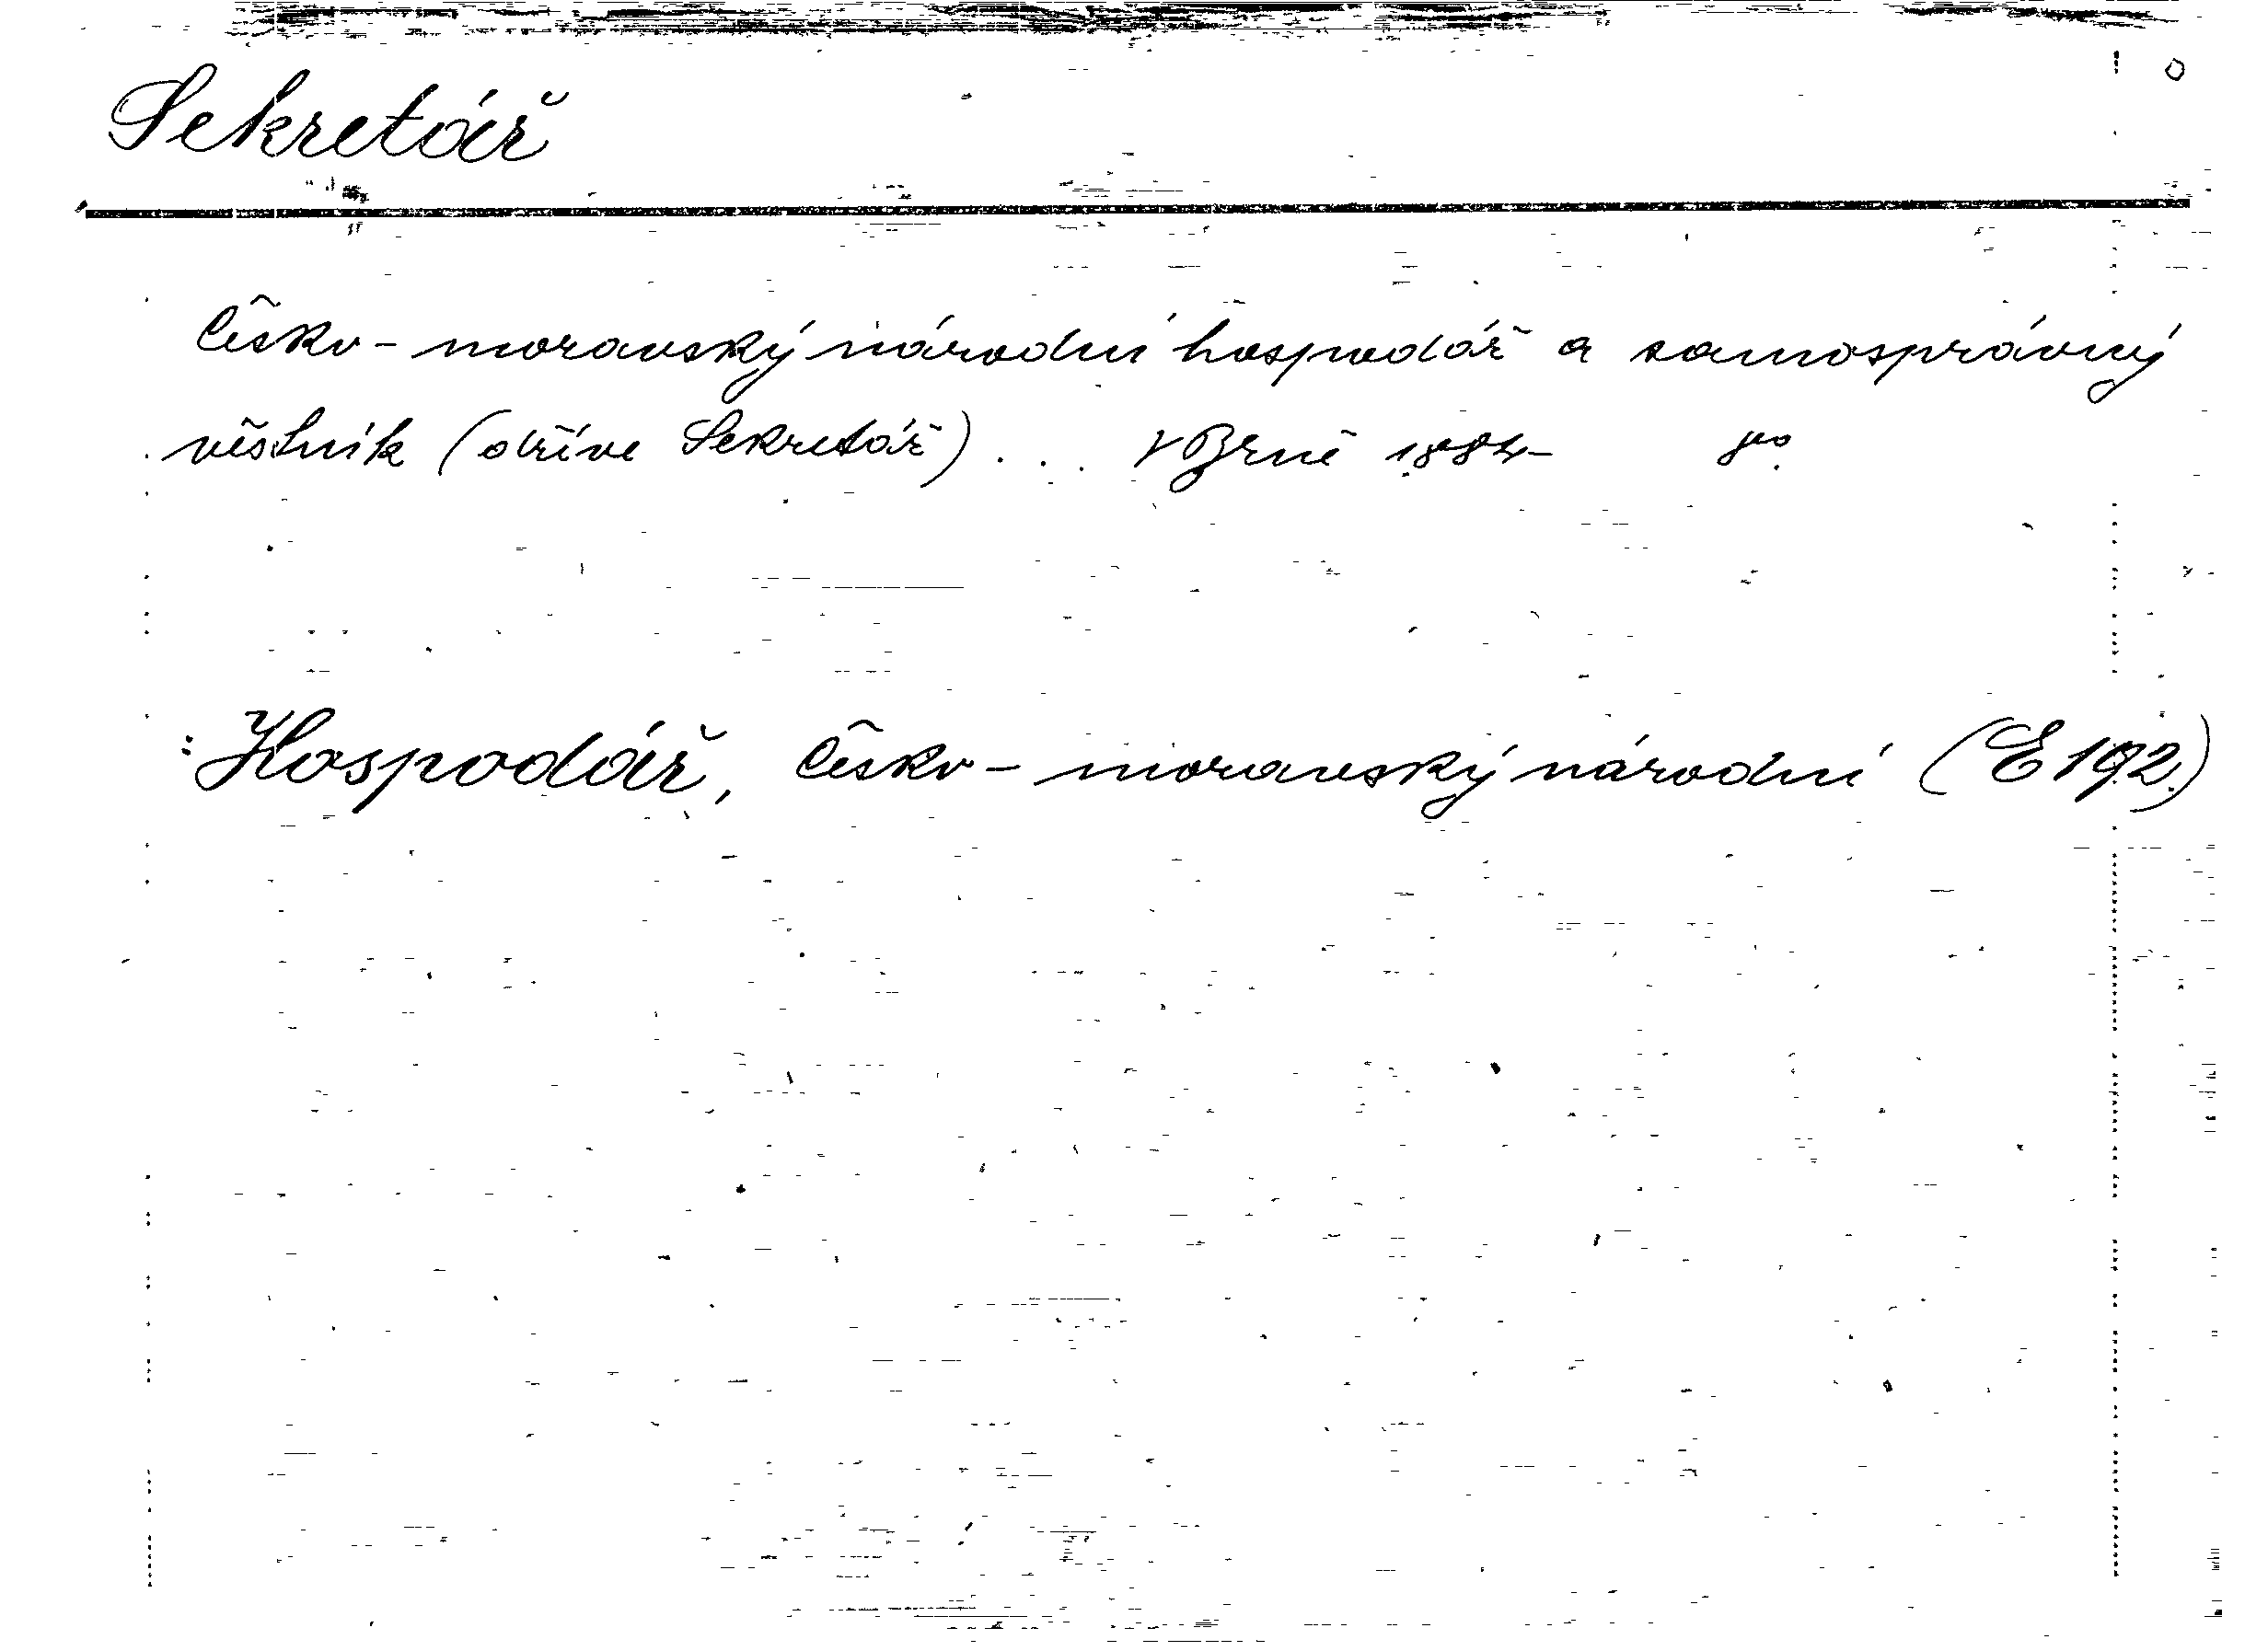 Sekretář
Česko-moravský národní hospodář a samosprávný
věstník (dříve Sekretář) ... V Brně 1884-
: Hospodář, Česko-moravský národní (E 192)